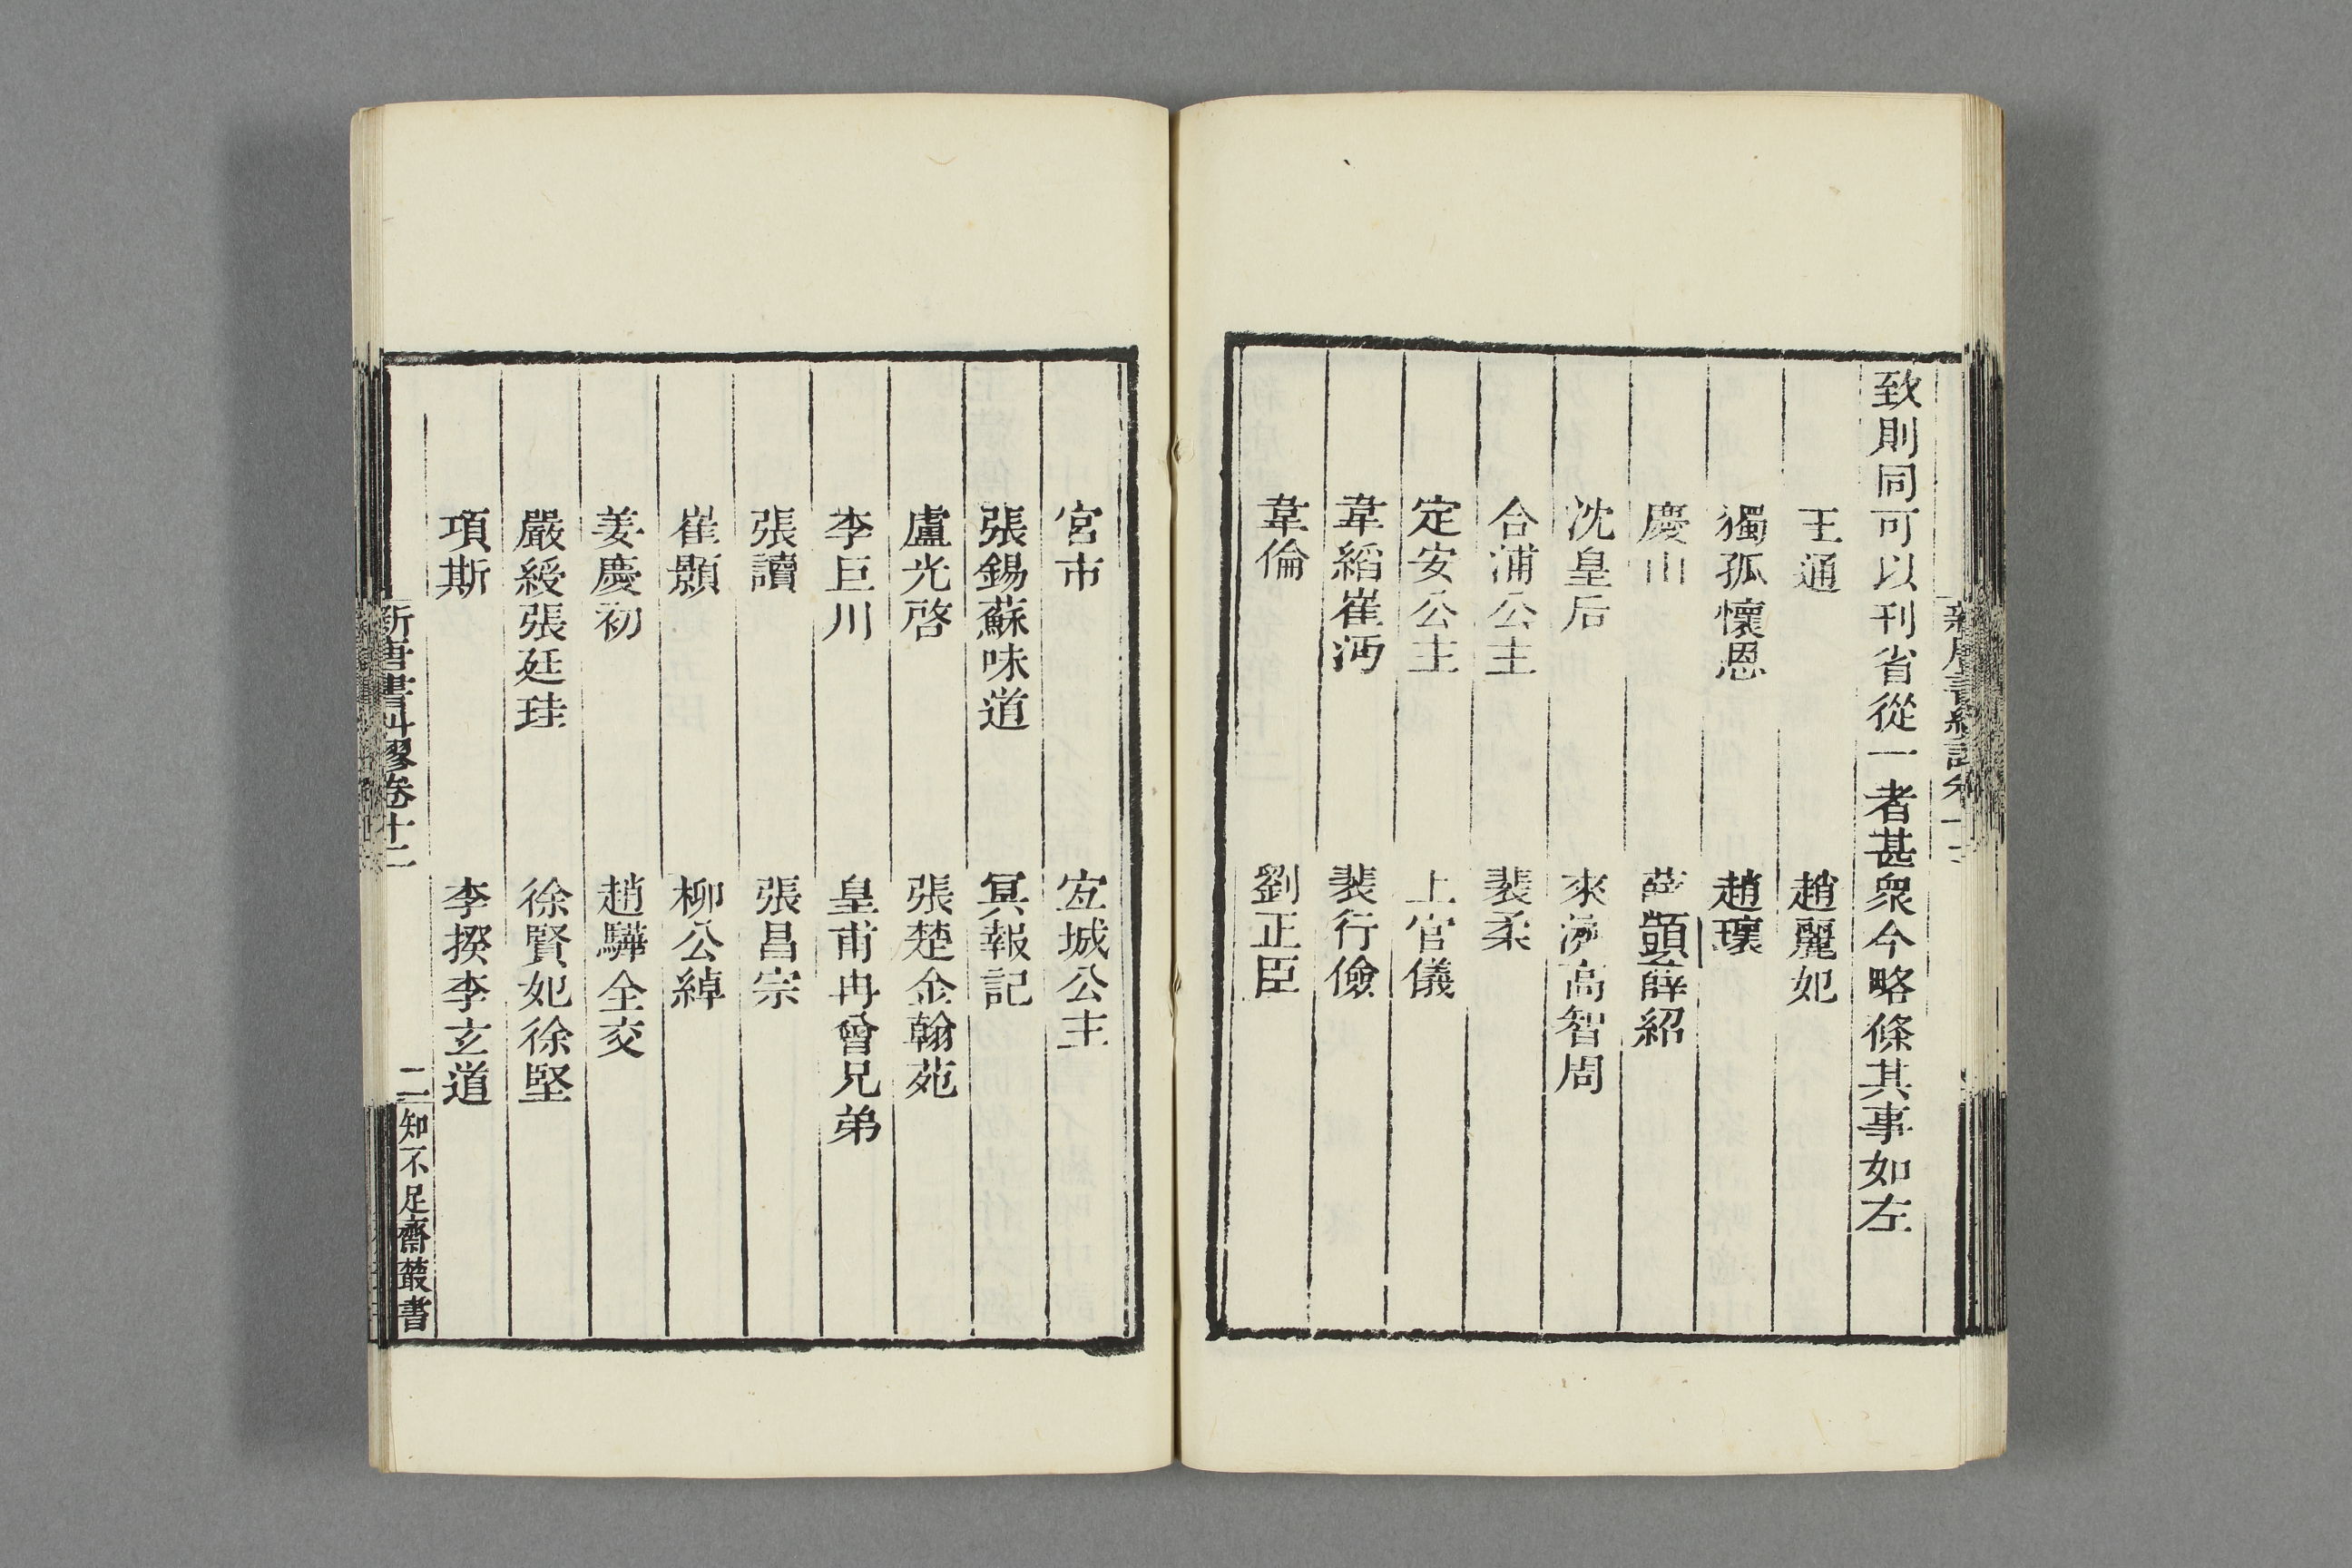 致則同可以刊省從一者甚衆今略條其事如左
王通　趙麗妃
獨孤懷恩　趙瓌
慶山　薛顗薛紹
沈皇后　來濟高智周
合浦公主　裴柔
定安公主　上官儀
韋縚崔沔　裴行儉
韋倫　劉正臣
宮市　宜城公主
張錫蘇味道　冥報記
盧光啓　張楚金翰苑
李巨川　皇甫冉曾兄弟
張讀　張昌宗
崔顥　柳公綽
姜慶初　趙驊全交
嚴綬張廷珪　徐賢妃徐堅
項斯　李揆李玄道
新唐書糾謬卷十二　二　知不足齋叢書